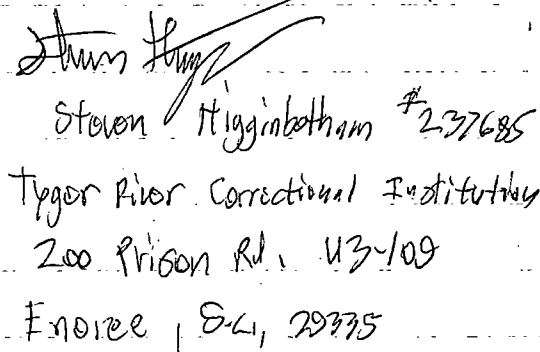 Steven Higginbotham #237685
Tyger River Correctional Institution
200 Prison Rd. U3-109
Enoree, S.C., 29335